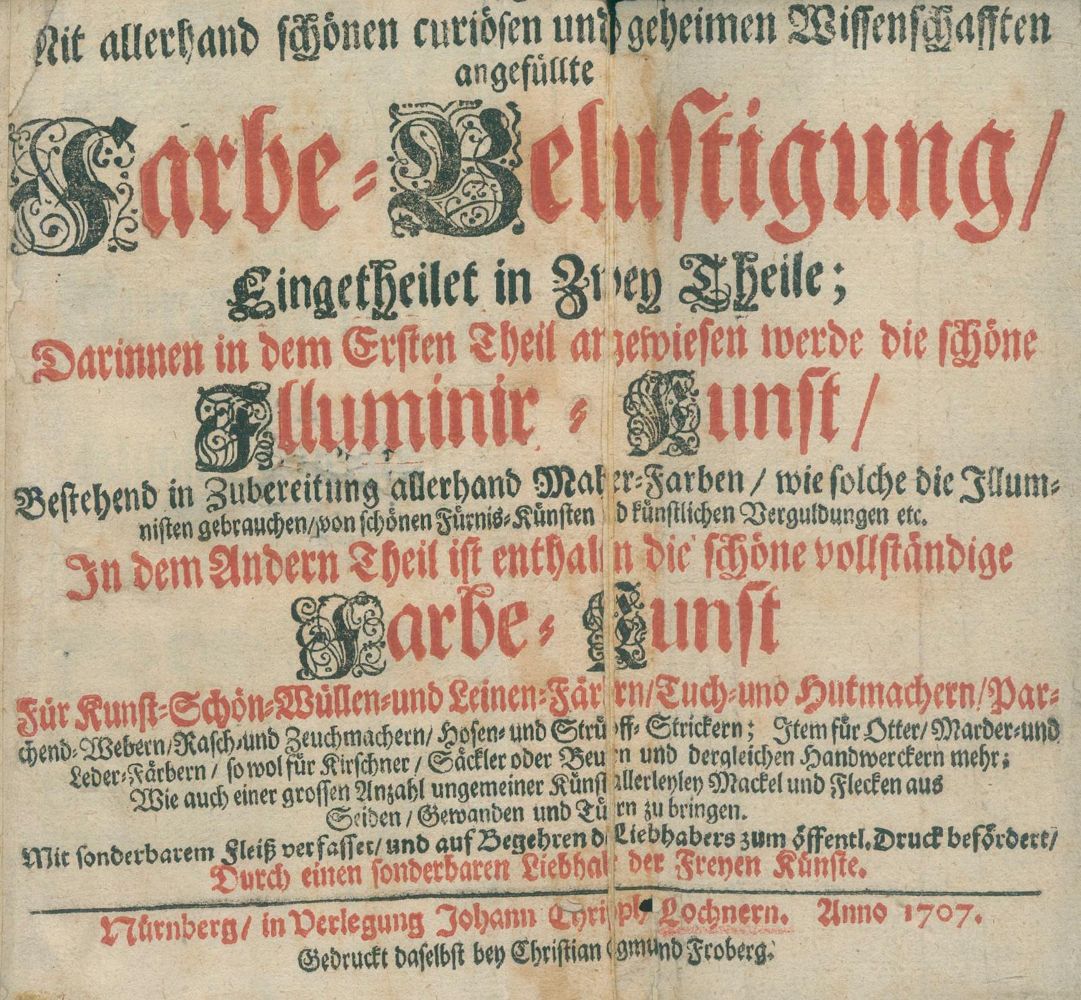 Mit allerhand schönen curiösen und geheimen Wissenschafften
angefüllte
Farbe-Belustigung/
Eingetheilet in Zwey Theile;
Darinnen in dem Ersten Theil angewiesen werde die schöne
Illuminir-Kunst/
Bestehend in Zubereitung allerhand Mahler-Farben/ wie solche die Illumi-
nisten gebrauchen/von schönen Fürnis-Künsten und künstlichen Verguldungen etc.
In dem Andern Theil ist enthalten die schöne vollständige
Farbe-Kunst
Für Kunst-Schön-Wüllen-und Leinen-Färbern/Tuch-und Hutmachern/Par-
chend-Webern/Rasch-und Zeuchmachern/Hosen-und Strümpff-Strickern; Item für Otter/Marder-und
Leder-Färbern/ so wol für Kirschner/ Säckler oder und dergleichen Handwerckern mehr;
Wie auch einer grossen Anzahl ungemeiner Künst allerleyley Mackel und Flecken aus
Seiden/ Gewanden und Tüchern zu bringen.
Mit sonderbarem Fleiß verfasset/ und auf Begehren Liebhabers zum öffentl. Druck befördert/
Durch einen sonderbaren Liebhaber der Freyen Künste.
Nürnberg/ in Verlegung Johann Christoph Lochnern. Anno 1707.
Gedruckt daselbst bey Christian Sigmund Froberg.